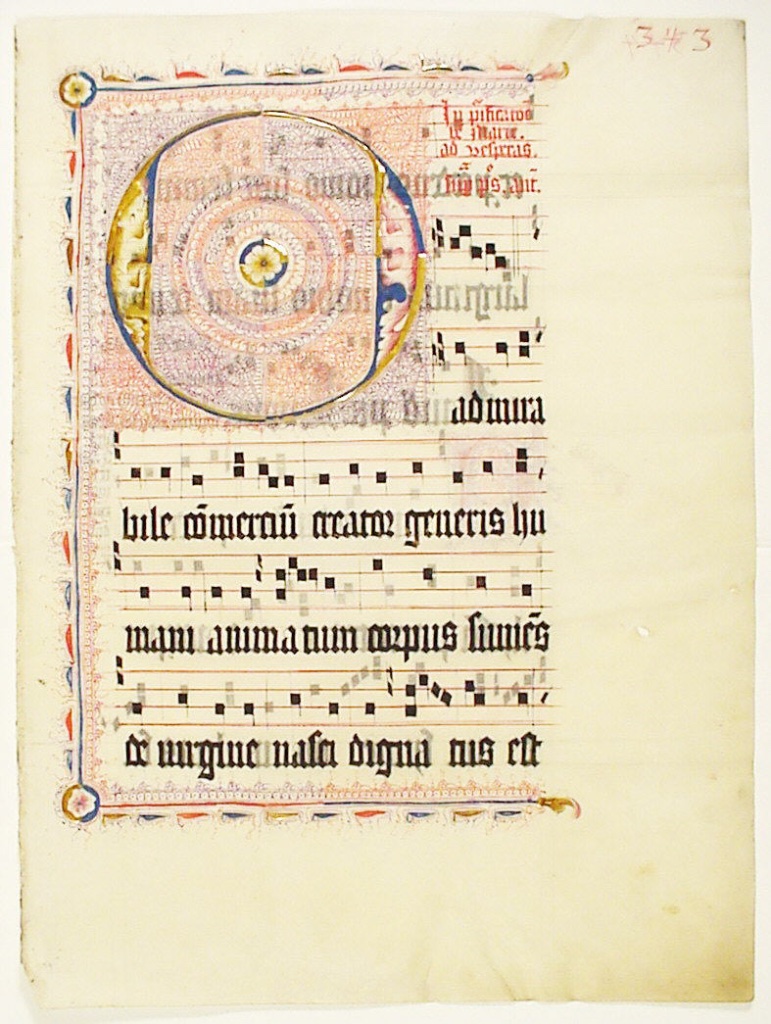 343
In p̄ificatiōe
be Marie.
ad vesperas.
O
admira
bile cōmerciū creator generis hu
mani animatum corpus sumēs
de uirgine nasci digna tus est